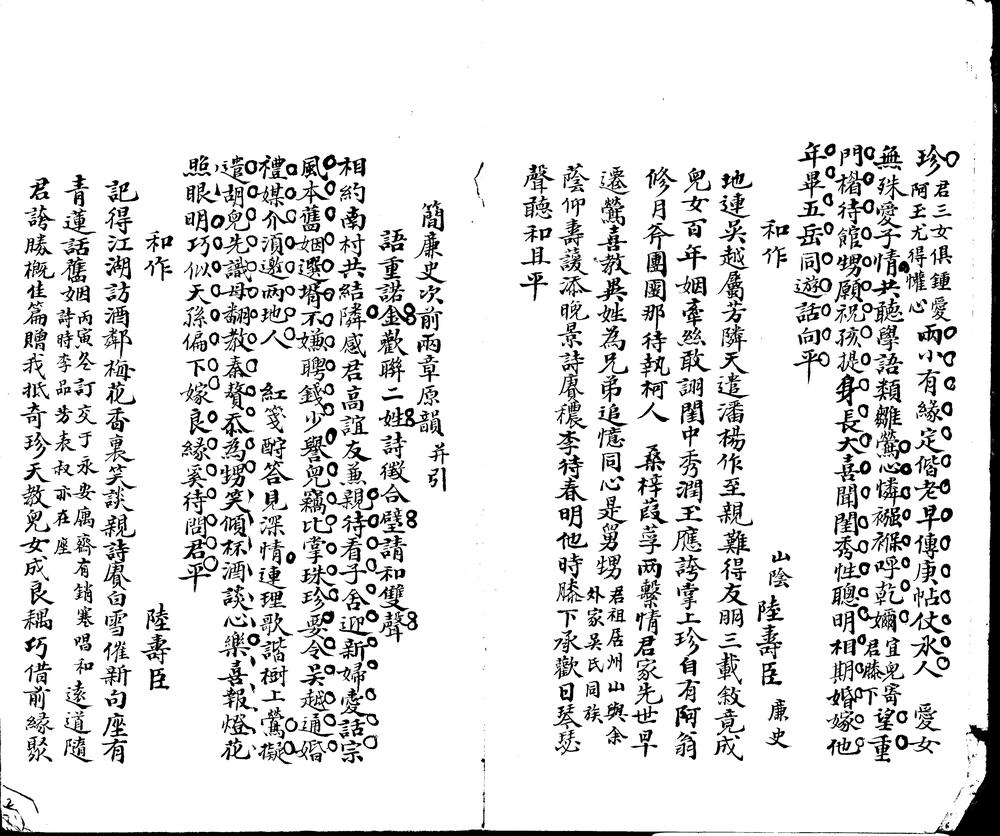 珍君三女俱鍾愛阿玉尤得懽心兩小有緣定偕老早傳庚帖仗氷人　愛女
無殊愛子情共聽學語類雛鶯心憐襁褓呼乾嬭宜兒寄君膝下望重
門楣待館甥願祝孩提身長大喜聞閨秀性聰明相期婚嫁他
年畢五岳同遊話向平
和作　山陰　陸壽臣　廉史
地連吳越屬芳隣天遣潘楊作至親難得友朋三載敘竟成
兒女百年姻牽絲敢詡閨中秀潤玉應誇掌上珍自有阿翁
修月斧團圞那待執柯人　桑梓葭莩兩繫情君家先世早
遷鶯喜教吳娃為兄弟追憶同心是舅甥君祖居州山與余外家吳氏同族
蔭仰壽護添晚景詩賡穠李待春明他時膝下承歡日琴瑟
聲聽和且平
簡廉史次前兩章原韻并引
語重諾金歡聯二姓詩徵合璧請和雙聲
相約南村共結隣感君高誼友兼親待看子舍迎新婦憂話宗
風本舊姻選壻不嫌聘錢少譽兒竊比掌珠珍要令吳越通婚
禮媒介須邀兩地人　紅箋酧答見深情連理歌諧樹上鶯擬
遣胡兒先識母翻教秦贅忝為甥笑傾杯酒談心樂喜報燈花
照眼明巧似天孫偏下嫁良緣奚待問君平
和作　陸壽臣
記得江湖訪酒鄰梅花香裏笑談親詩賡白雪催新句座有
青蓮話舊姻丙寅冬訂交于永安廣齋有銷寒唱和詩時李品芳表叔亦在座遠道隨
君誇勝概佳篇贈我抵奇珍天教兒女成良耦巧借前緣聚